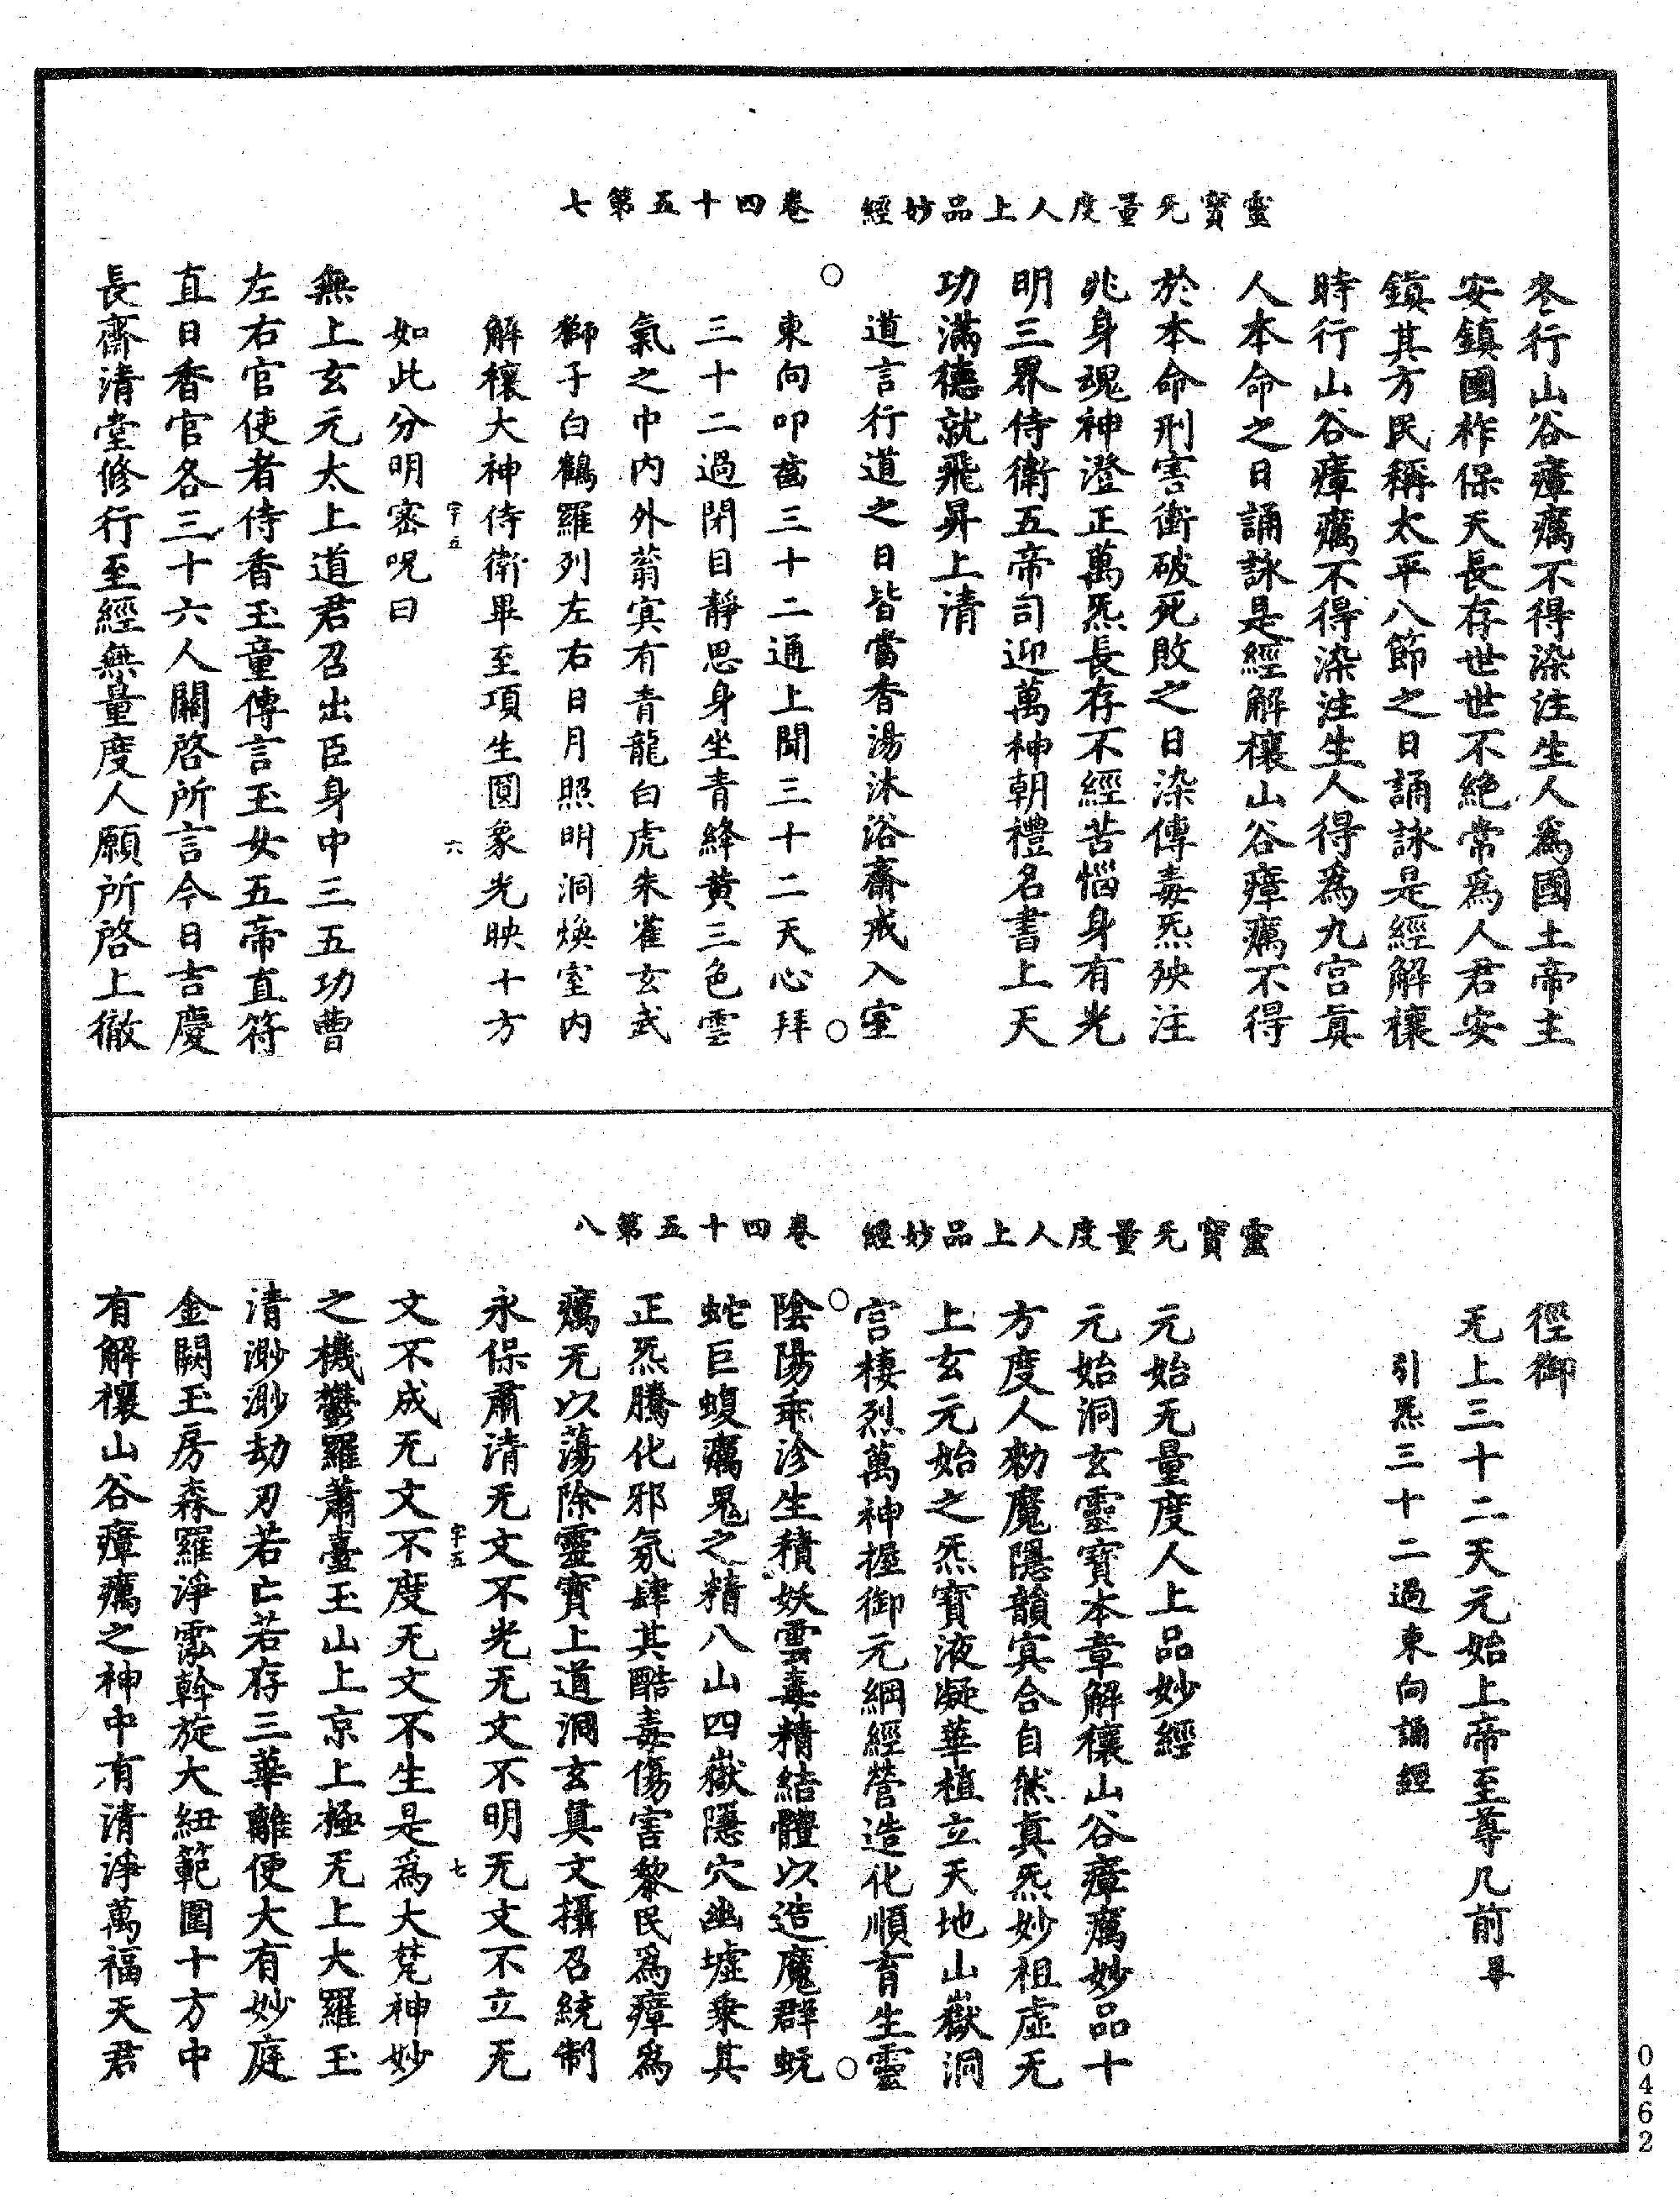 靈寶无量度人上品妙經　卷四十五第七
冬行山谷瘴癘不得染注生人爲國土帝主
安鎮國祚保天長存世世不絶常爲人君安
鎮其方民稱太平八節之日誦詠是經解禳
時行山谷瘴癘不得染注生人得爲九宮眞
人本命之日誦詠是經解禳山谷瘴癘不得
於本命刑害衝破死敗之日染傳毒炁殃注
兆身魂神澄正萬炁長存不經苦惱身有光
明三界侍衛五帝司迎萬神朝禮名書上天
功滿德就飛昇上清
道言行道之日皆當香湯沐浴齋戒入室
東向叩齒三十二通上聞三十二天心拜
三十二過閉目靜思身坐青絳黃三色雲
氣之中內外蓊㝠有青龍白虎朱雀玄武
獅子白鶴羅列左右日月照明洞煥室內
解禳大神侍衛畢至項生圓象光映十方
字五　六
如此分明密呪曰
無上玄元太上道君召出臣身中三五功曹
左右官使者侍香玉童傳言玉女五帝直符
直日香官各三十六人關啓所言今日吉慶
長齋清堂修行至經無量度人願所啓上徹
靈寶无量度人上品妙經　卷四十五第八
徑御
无上三十二天元始上帝至尊几前畢
引炁三十二過東向誦經
元始无量度人上品妙經
元始洞玄靈寶本章解禳山谷瘴癘妙品十
方度人勑魔隱韻㝠合自然眞炁妙祖虛无
上玄元始之炁寶液凝華植立天地山嶽洞
宮棲烈萬神握御元綱經營造化順育生靈
陰陽乖沴生積妖雲毒精結體以造魔群蚖
蛇巨蝮癘鬼之精八山四嶽隱穴幽墟乗其
正炁騰化邪氛肆其酷毒傷害黎民爲瘴爲
癘无以蕩除靈寶上道洞玄眞文攝召統制
永保肅清无文不光无文不明无文不立无
字五　七
文不成无文不度无文不生是爲大梵神妙
之機鬱羅蕭臺玉山上京上極无上大羅玉
清渺渺劫刃若亡若存三華離便大有妙庭
金闕玉房森羅淨泓幹旋大紐範圍十方中
有解禳山谷瘴癘之神中有清淨萬福天君
0462